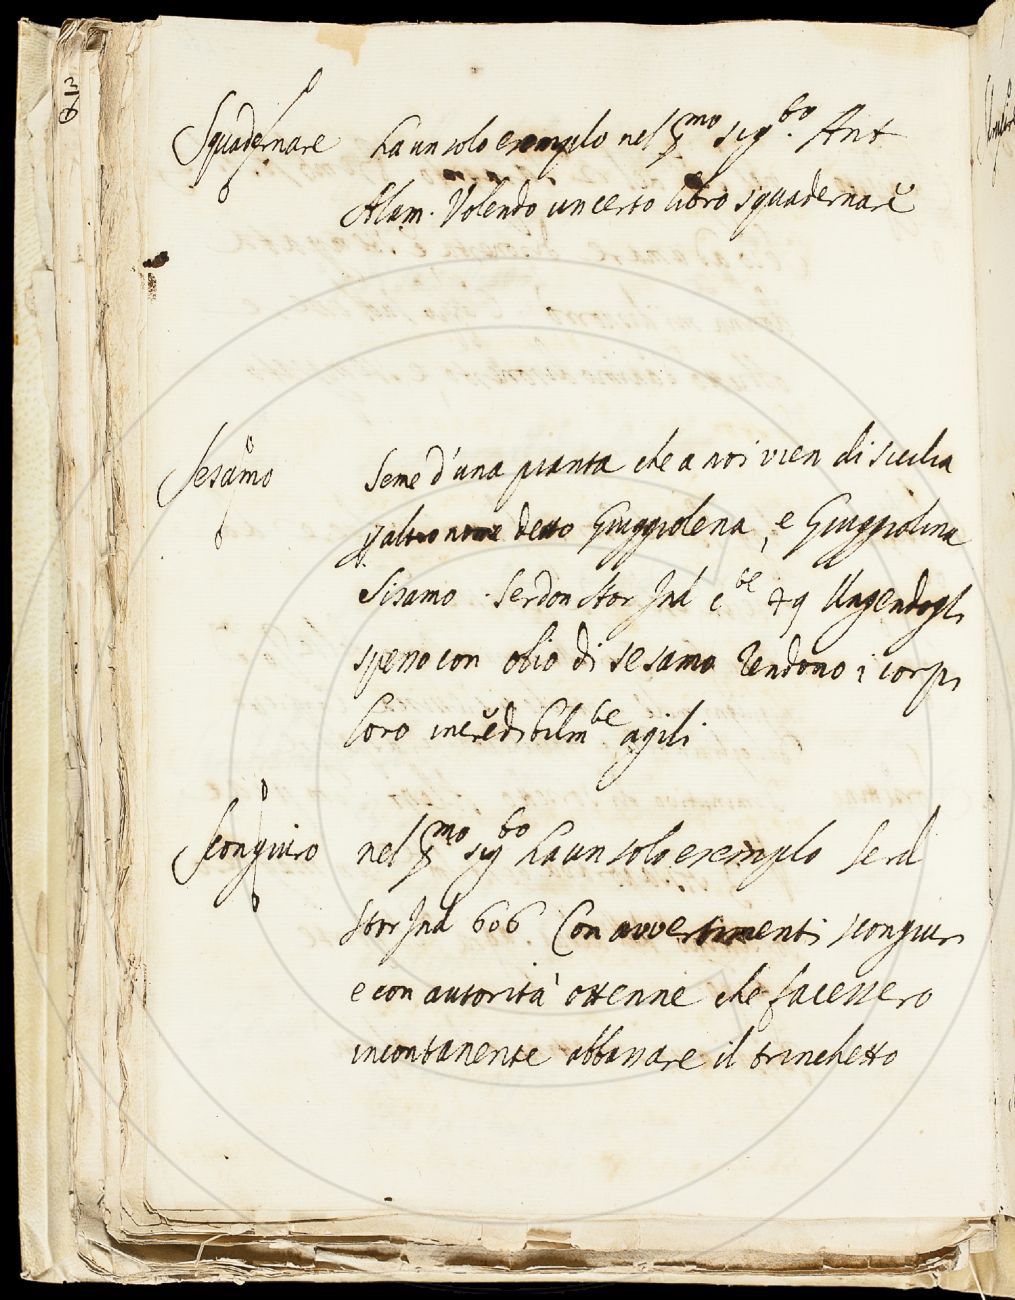 Squadernare ha un solo exemplo nel p.mo sig.to Ant
Alam. Volendo un certo libro squadernare
Sesamo Seme d'una pianta che a noi vien di sicilia
p altro nome detto Giuggiolena, e Giuggiolina
Sisamo. Serdon stor Ind Ungendogli
spesso con olio di sesamo rendono i corpi
loro incredibilm.te agili
Scongiuro nel p.mo sig.to ha un solo exemplo Serd
stor Ind 606 Con avvertimenti scongiuri
e con autorità ottenne che facessero
incontanente abbassare il trinchetto